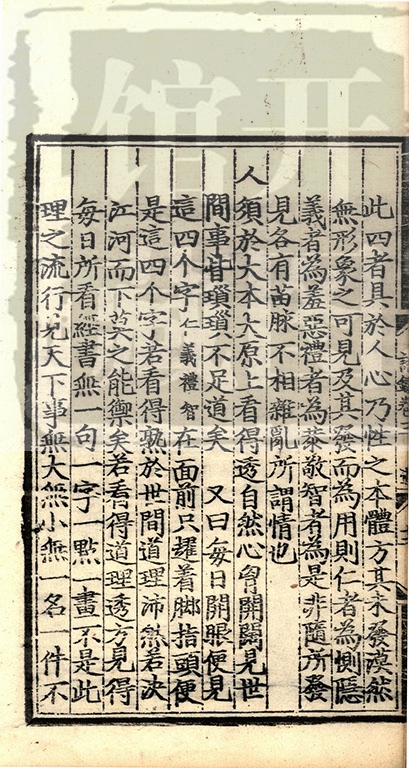 此四者具於人心乃性之本體方其未發漠然
無形象之可見及其發而為用則仁者為惻隱
義者為羞惡禮者為恭敬智者為是非隨所發
見各有苗脉不相雜亂所謂情也
人須於大本大原上看得透自然心胷開闊見世
間事皆瑣瑣不足道矣 又曰每日開眼便見
這四个字仁義禮智在面前只趯着脚指頭便
是這四个字若看得熟於世間道理沛然若决
江河而下莫之能禦矣若看得道理透方見得
每日所看經書無一句一字一點一畫不是此
理之流行見天下事無大無小無一名一件不